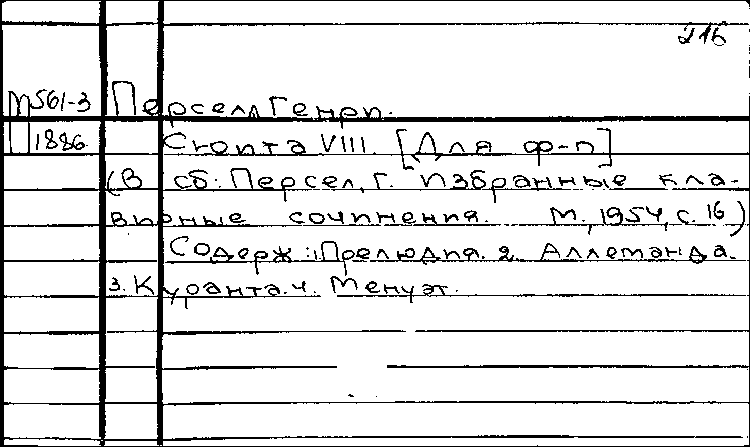 216
П561-3 Персел, Генри.
1886 Сюита VIII. [Для ф-п]
(В сб: Персел, Г. Избранные кла-
вирные сочинения. М., 1954, с. 16)
Содерж: 1. Прелюдия. 2. Аллеманда.
3. Куранта. 4. Менуэт.